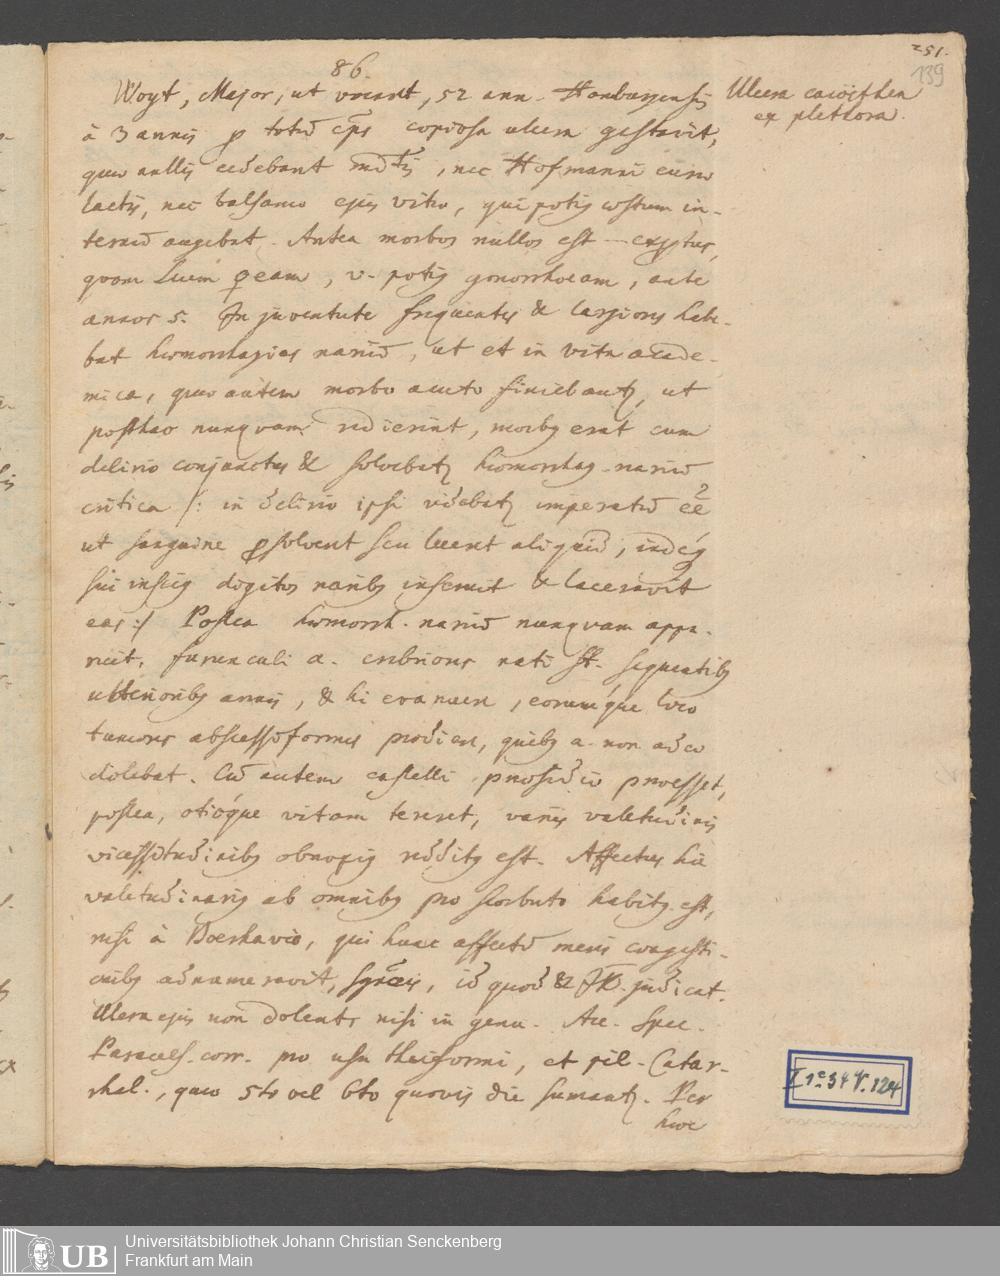 251.
139
86.
Woyt, Major, ut vocant, 52 ann. Hamburgensis
à 3 annis p totū cps copiosa ulcera gestavit,
quae nullis cedebant , nec Hofmanni cura
lactis, nec balsamo ejus vitae, qui potius in-
ternū augebat. Antea morbos nullos est expertus,
quam Luem , v. potius gonorrhoeam, ante
annos 5. In juventute frequentes & largiores habe-
bat haemorrhagias nariū, ut et in vita acade-
mica, quae autem morbo acuto finiebantur, ut
posthac nunquam redierint, morbus erat cum
delirio conjunctus & solvebatur haemorrhag. nariū
critica /: in delirio ipsi videbatur imperatū eē
ut sanguine psolveret seu lueret aliquid, indéq
sui inscius digitos naribus inseruit & laceravit
eas :/ Postea haemorrh. nariū nunquam appa-
ruit, furunculi a. crebriores nati st. sequentibus
ulterioribus annis, & hi evanuere, eorumque loco
tumores abscessiformes prodiere, quibus a. non adeo
dolebat. Cū autem castelli praesidio praeesset,
postea, otióque vitam tereret, variis valetudinis
vicissitudinibus obnoxius redditus est. Affectus hic
valetudinarius ab omnibus pro scorbuto habitus est,
nisi à Boerhavio, qui hunc affectū meris congesti-
onibus adnumeravit, , id quod & judicat.
Ulcera ejus non dolent, nisi in genu. Acc. Spec.
Paracels. corr. pro usu theiformi, et pil. Catar-
rhal., quae 5to vel 6to quovis die sumantur. Per
haec
Ulcera cacoëthea
ex plethora.
I 1e 34 V. 124
UB
Universitätsbibliothek Johann Christian Senckenberg
Frankfurt am Main